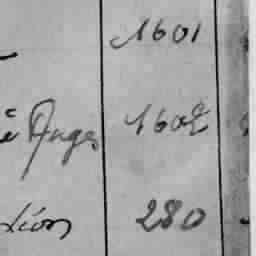 1601
è Ange 1602
Léon 280